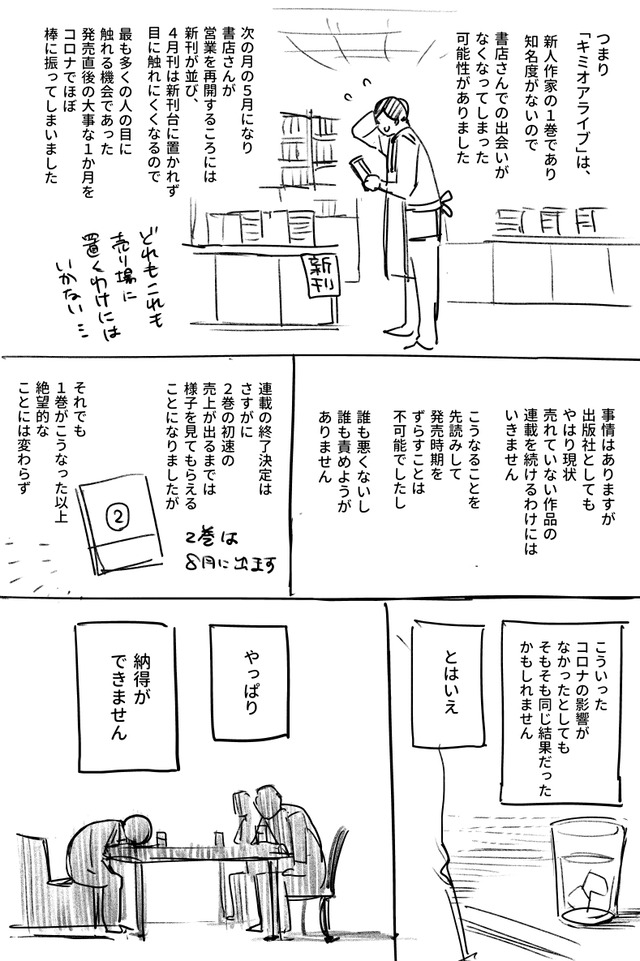 つまり
「キミオアライブ」は、
新人作家の１巻であり
知名度がないので
書店さんでの出会いが
なくなってしまった
可能性がありました
次の月の５月になり
書店さんが
営業を再開するころには
新刊が並び、
４月刊は新刊台に置かれず
目に触れにくくなるので
最も多くの人の目に
触れる機会であった
発売直後の大事な１か月を
コロナでほぼ
棒に振ってしまいました
新刊
どれもこれも
売り場に
置くわけには
いかない…
事情はありますが
出版社としても
やはり現状
売れていない作品の
連載を続けるわけには
いきません
こうなることを
先読みして
発売時期を
ずらすことは
不可能でしたし
誰も悪くないし
誰も責めようが
ありません
連載の終了決定は
さすがに
２巻の初速の
売上が出るまでは
様子を見てもらえる
ことになりましたが
２巻は
８月に出ます
②
それでも
１巻がこうなった以上
絶望的な
ことには変わらず
こういった
コロナの影響が
なかったとしても
そもそも同じ結果だった
かもしれません
とはいえ
やっぱり
納得が
できません